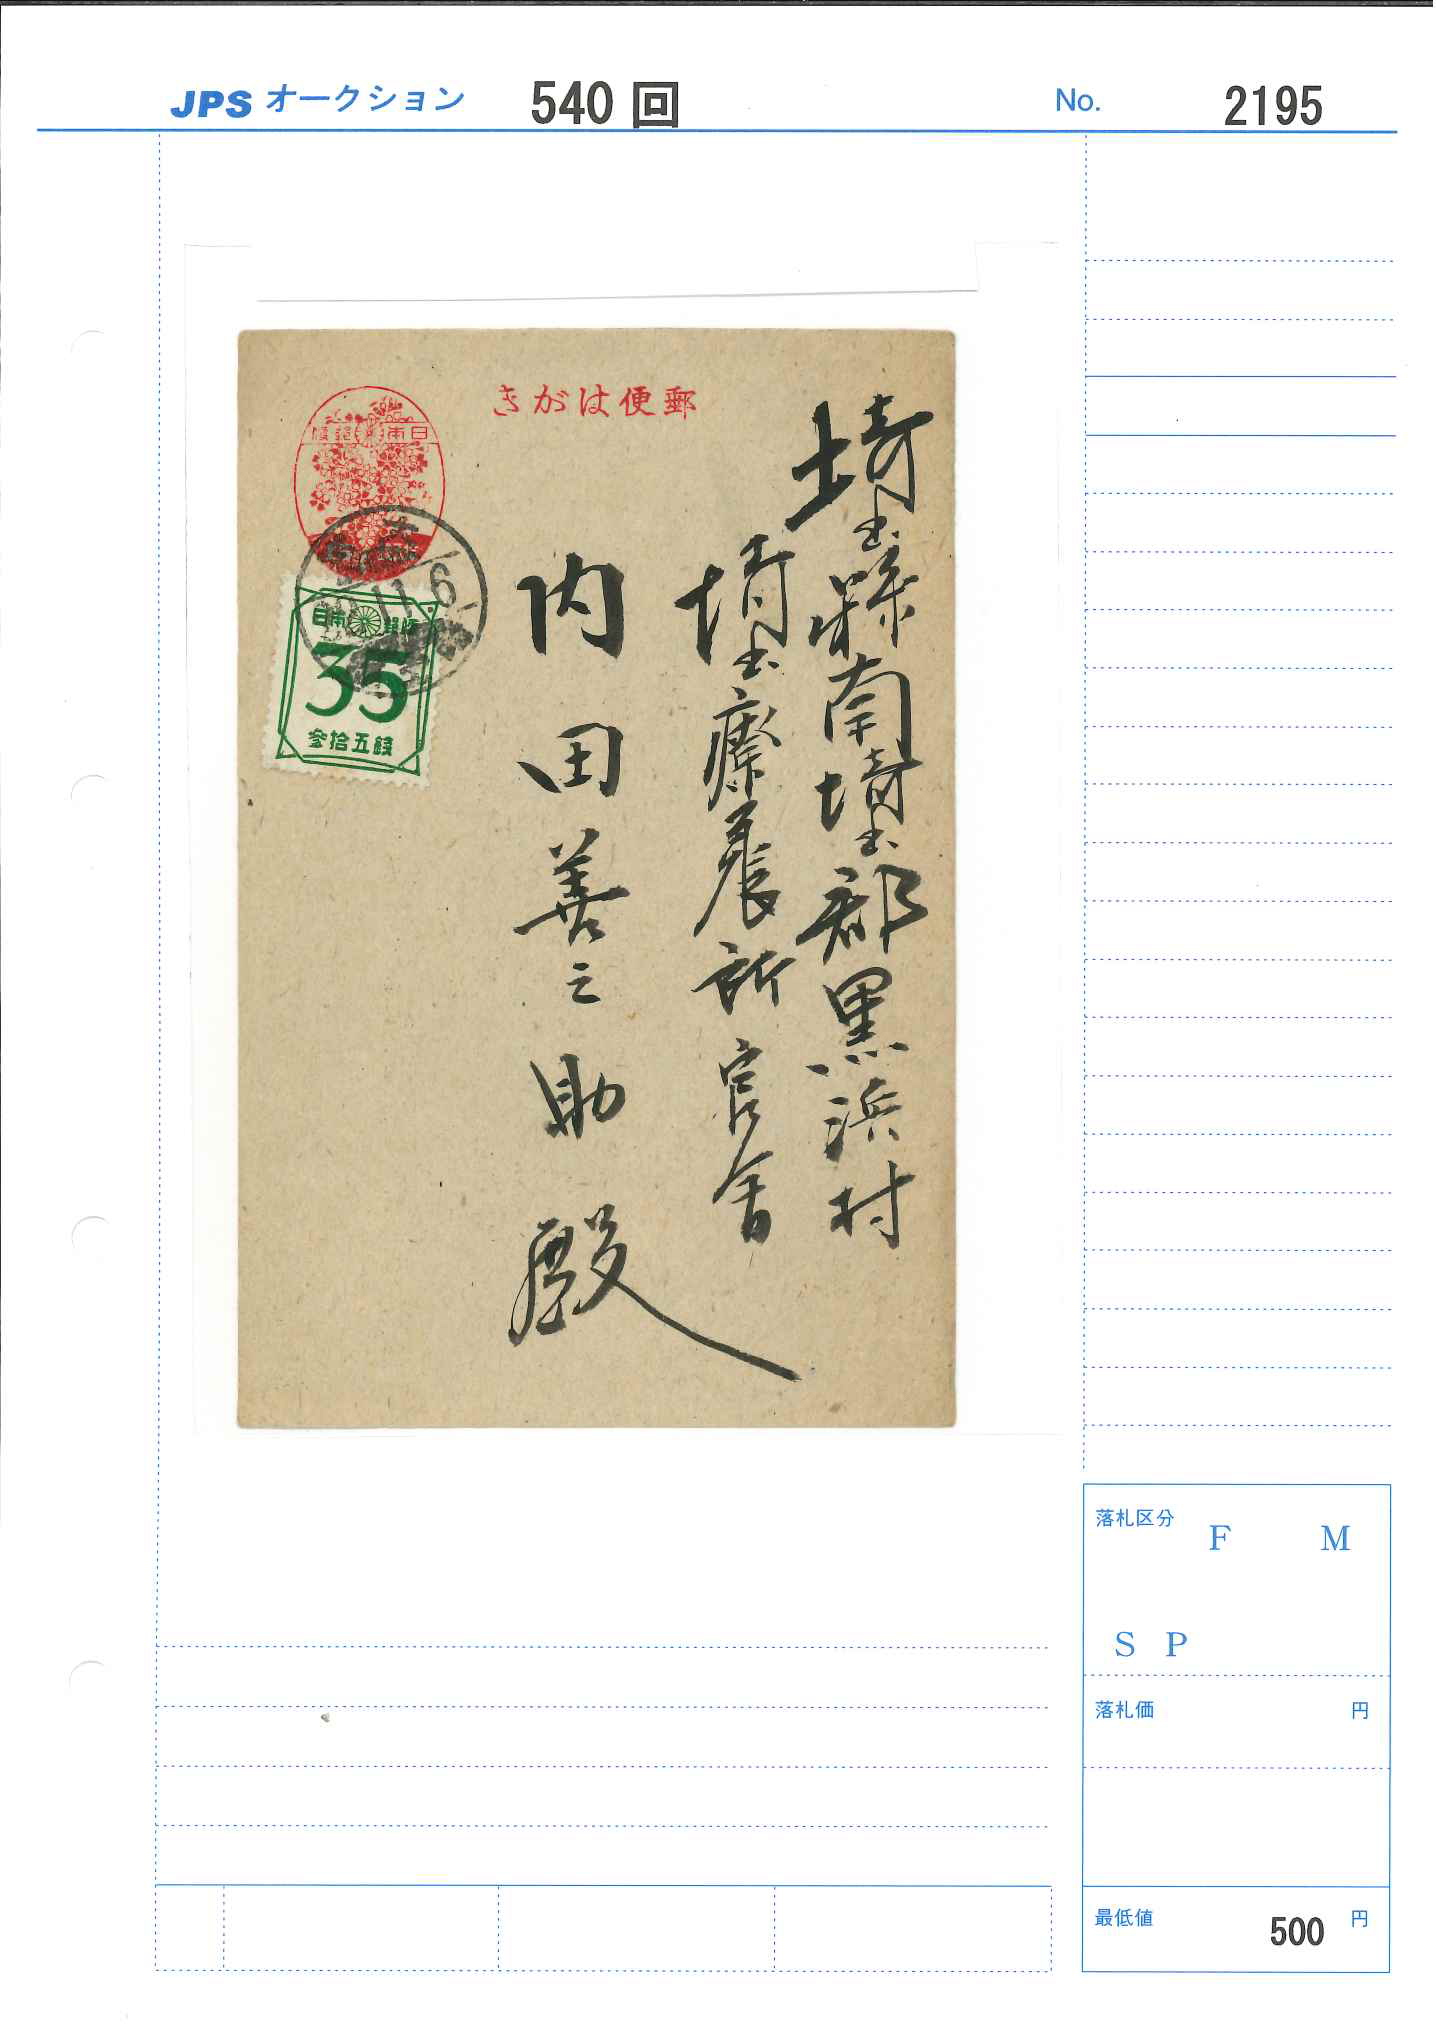 JPS オークション 540 回 No. 2195
きがは便郵
日本郵便
11.6
日本郵便
35
参拾五銭
埼玉縣南埼玉郡黒浜村
埼玉療養所官舎
内田善之助殿
落札区分 F M
S P
落札価 円
最低値 500 円